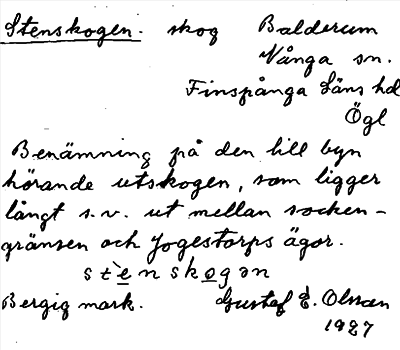 Stenskogen. skog Balderum
Vånga sn.
Finspånga Läns hd
Ögl
Benämning på den till byn
hörande utskogen, som ligger
långt s.v. ut mellan socken-
gränsen och Jogestorps ägor.
stènskogən
Bergig mark. Gustaf E. Olsson
1927